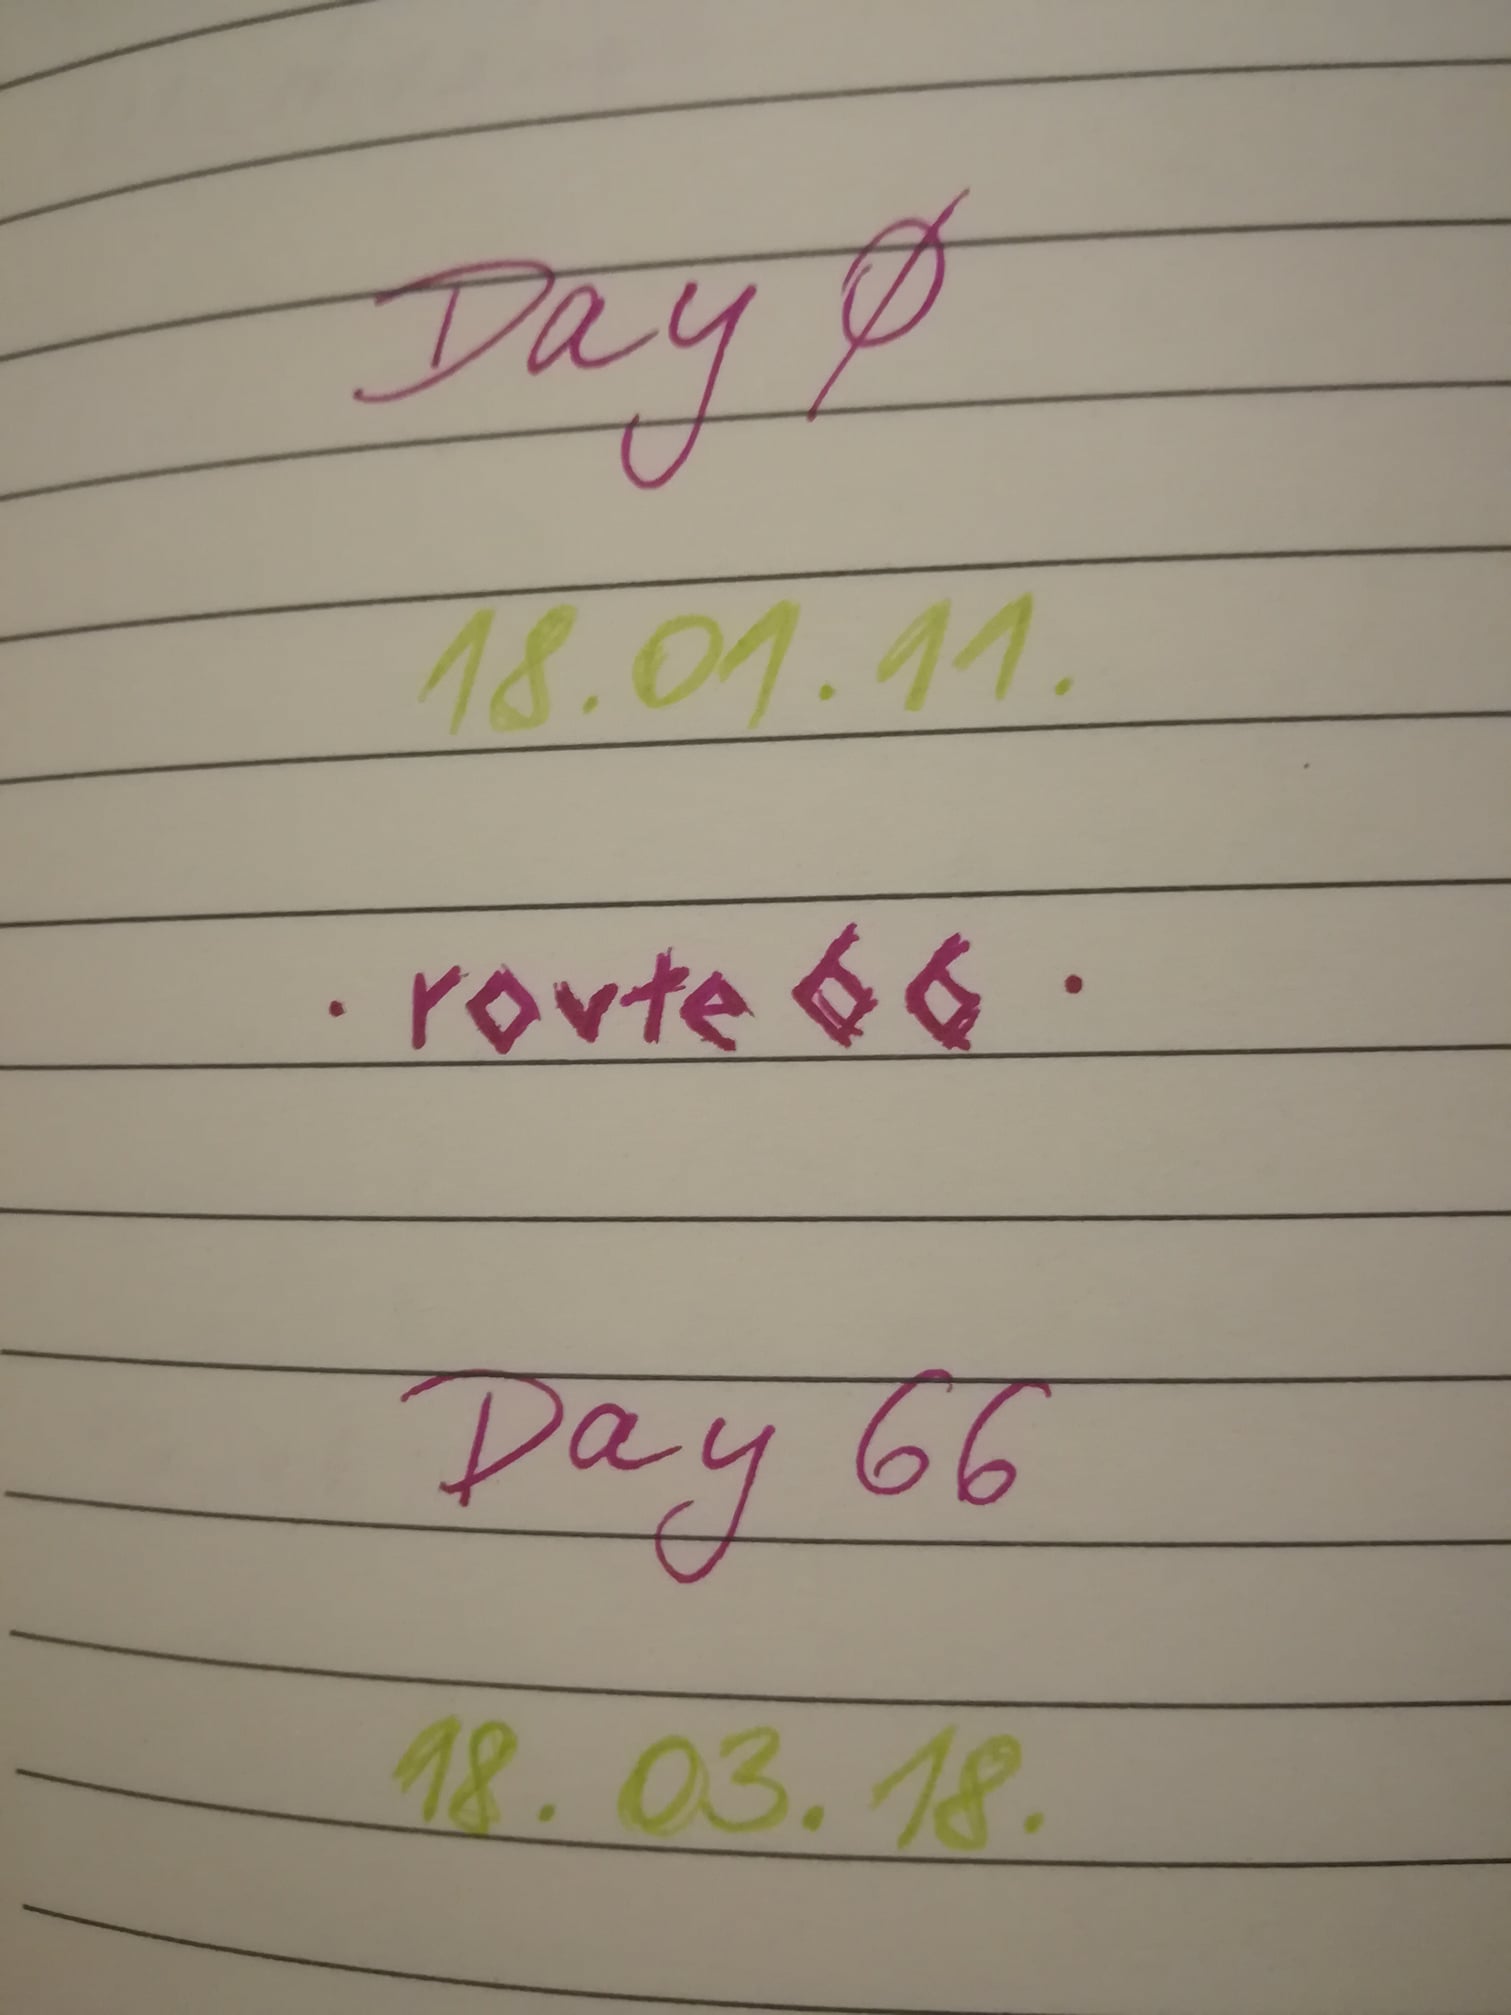 Day Ø
18.01.11.
· route 66 ·
Day 66
18.03.18.